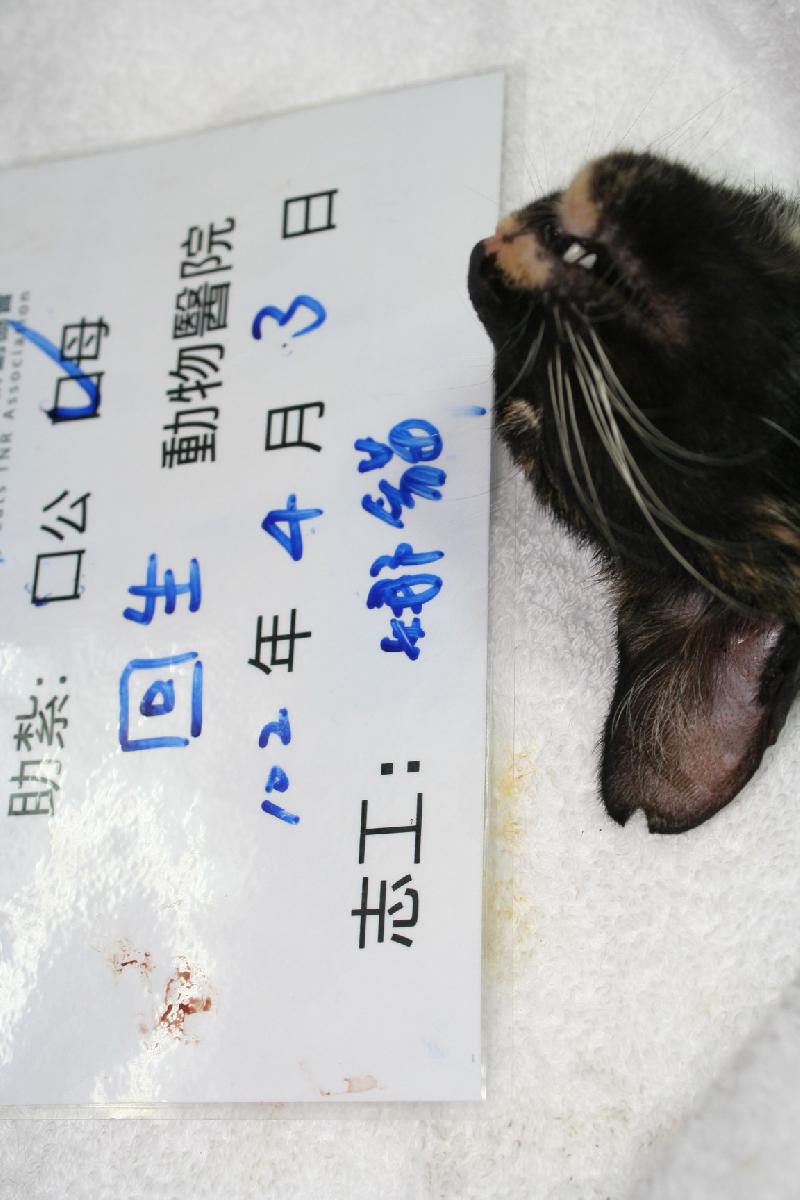 TNR Association
助紮： 口公 口母
回生 動物醫院
102 年 4 月 3 日
志工： 娜貓